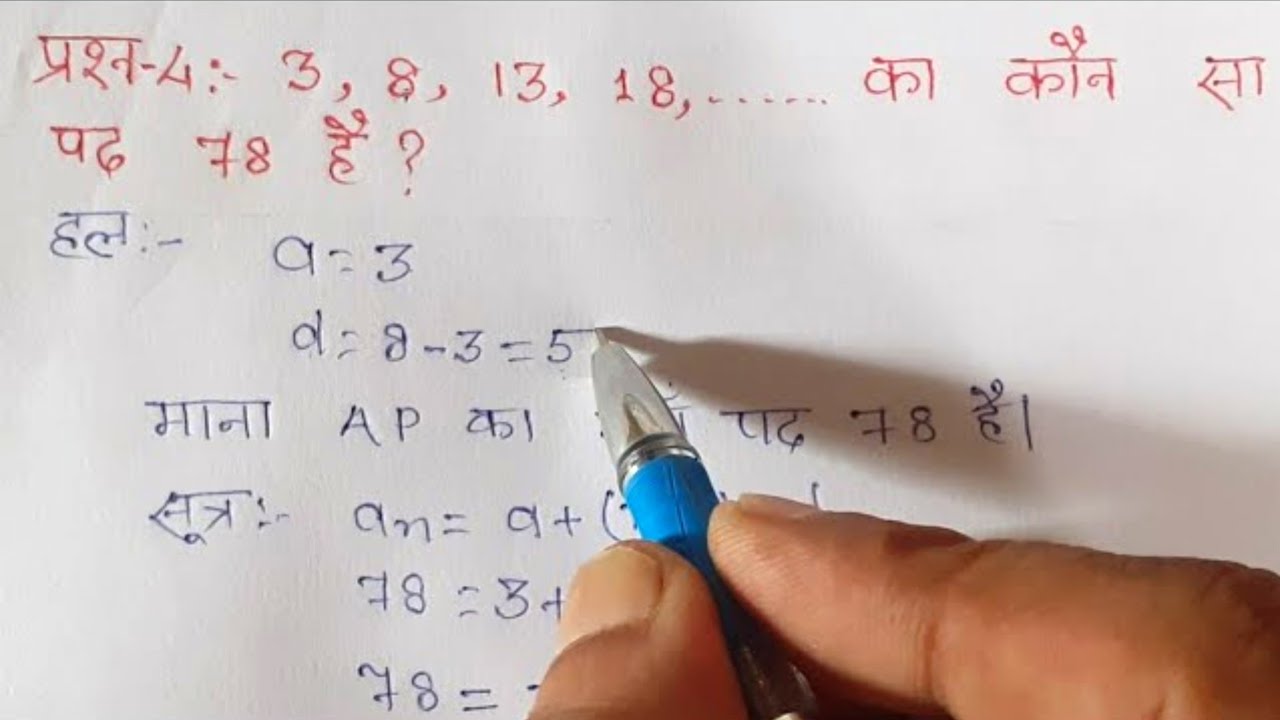 प्रश्न-4:- 3, 8, 13, 18,...... का कौन सा
पद 78 है ?
हल:- a = 3
d = 8 - 3 = 5
माना AP का पद 78 है।
सूत्र:- an = a + (
78 = 3 +
78 =